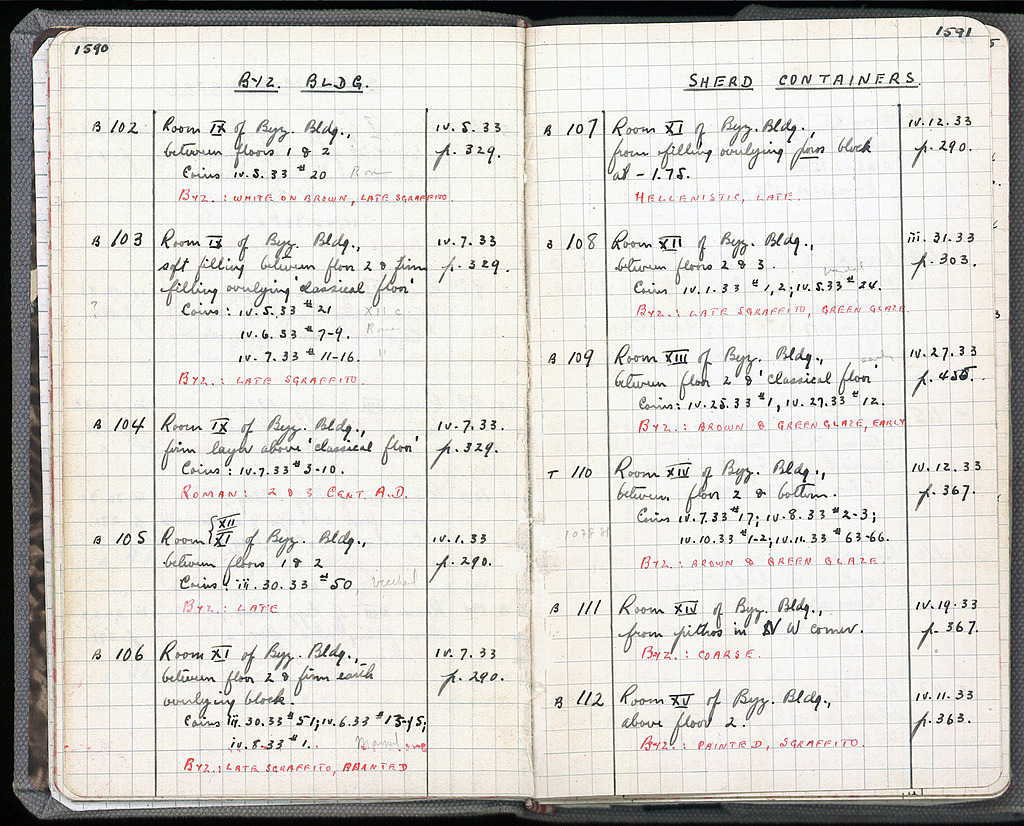 1590
BYZ. BLDG.
B 102 Room IX of Byz. Bldg., iv.5.33
between floors 1 & 2 p. 329.
Coins iv.5.33 #20 Rom
BYZ.: WHITE ON BROWN, LATE SGRAFFITO.
B 103 Room IX of Byz. Bldg., iv.7.33
soft filling between floor 2 & firm p. 329.
filling overlying 'classical floor'
? Coins: iv.5.33 #21 XII c.
iv.6.33 #7-9. Rom
iv.7.33 #11-16. "
BYZ.: LATE SGRAFFITO.
B 104 Room IX of Byz. Bldg., iv.7.33.
firm layer above 'classical floor' p. 329.
Coins: iv.7.33 #3-10.
ROMAN: 2 & 3 CENT. A.D.
B 105 Room {XII XI of Byz. Bldg., iv.1.33
between floors 1 & 2 p. 290.
Coins: iii.30.33 #50
BYZ.: LATE
B 106 Room XI of Byz. Bldg., iv.7.33
between floor 2 & firm earth p. 290.
overlying block.
Coins iii.30.33 #51; iv.6.33 #13-15;
iv.8.33 #1.
BYZ.: LATE SGRAFFITO, PAINTED
1591
SHERD CONTAINERS.
B 107 Room XI of Byz. Bldg., iv.12.33
from filling overlying poros block p. 290.
at -1.75.
HELLENISTIC, LATE.
B 108 Room XII of Byz. Bldg., iii.31.33
between floors 2 & 3. p. 303.
Coins iv.1.33 #1,2; iv.5.33 #24.
BYZ.: LATE SGRAFFITO, GREEN GLAZE
B 109 Room XIII of Byz. Bldg., early iv.27.33
between floor 2 & 'classical floor' p. 455.
Coins: iv.25.33 #1, iv.27.33 #12.
BYZ.: BROWN & GREEN GLAZE, EARLY
T 110 Room XIV of Byz. Bldg., iv.12.33
between floor 2 & bottom. p. 367.
Coins iv.7.33 #17; iv.8.33 #2-3;
1078-81 iv.10.33 #1-2; iv.11.33 #63-66.
BYZ.: BROWN & GREEN GLAZE.
B 111 Room XIV of Byz. Bldg., iv.19.33
from pithos in N W corner. p. 367.
BYZ.: COARSE.
B 112 Room XV of Byz. Bldg., iv.11.33
above floor 2. p. 363.
BYZ.: PAINTED, SGRAFFITO.